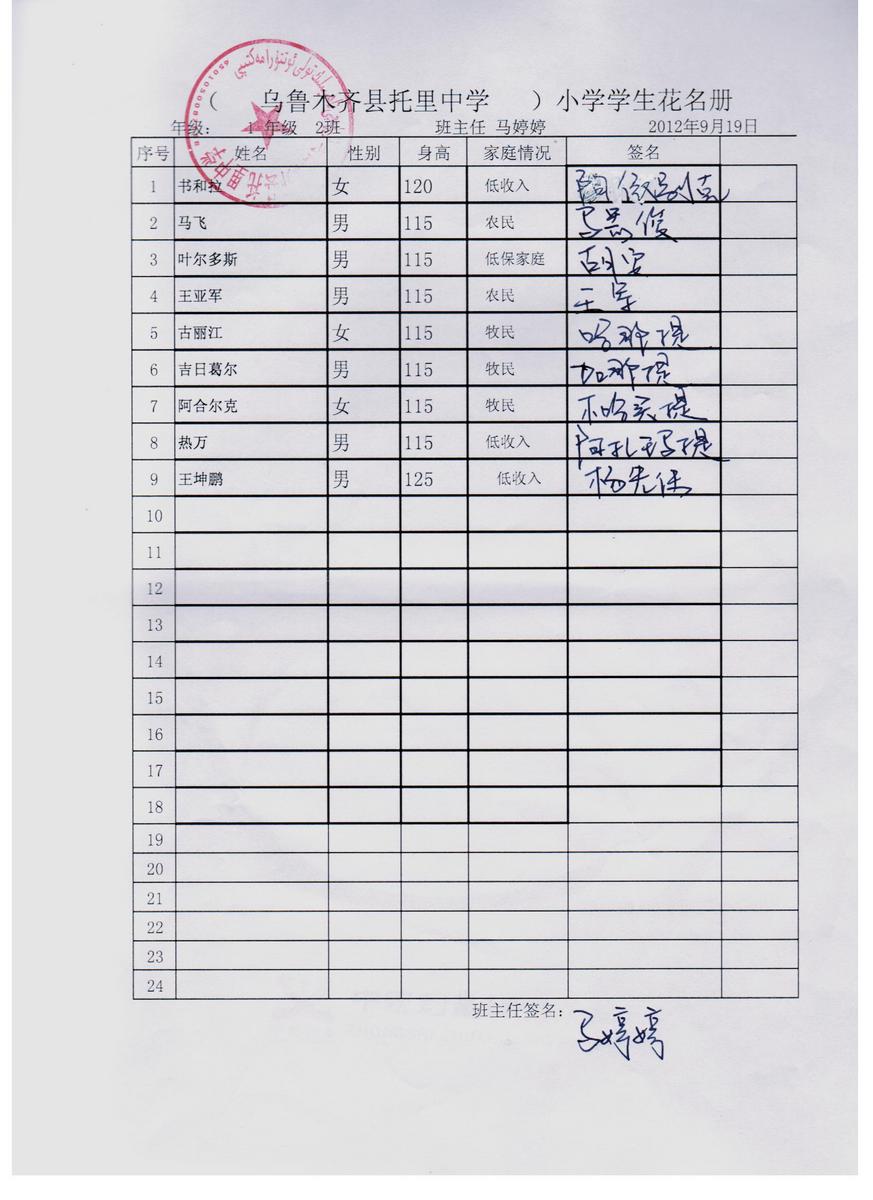 （ 乌鲁木齐县托里中学 ）小学学生花名册
年级： 1 年级 2班 班主任 马婷婷 2012年9月19日
序号 姓名 性别 身高 家庭情况 签名
1 书和拉 女 120 低收入
2 马飞 男 115 农民
3 叶尔多斯 男 115 低保家庭 胡安
4 王亚军 男 115 农民 王军
5 古丽江 女 115 牧民 哈那提
6 吉日葛尔 男 115 牧民 加那提
7 阿合尔克 女 115 牧民
8 热万 男 115 低收入
9 王坤鹏 男 125 低收入 杨先保
10
11
12
13
14
15
16
17
18
19
20
21
22
23
24
班主任签名：马婷婷